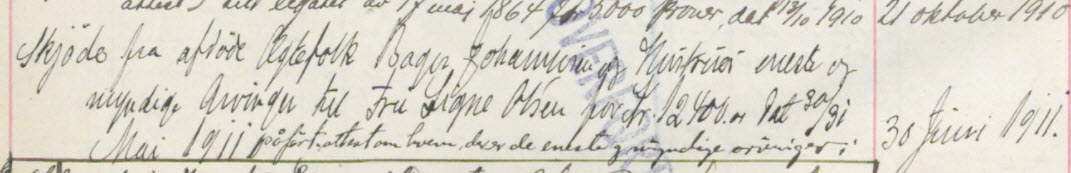 attest) sit legater av 17 mai 1864 for 5000 kroner, dat 13/10 1910 21 oktober 1910
Skjöde fra afdöde Ægtefolk Bager Johannesen og Hustrues eneste og
myndige Arvinger til Fru Signe Olsen for Kr. 12400.00 Dat 30/31
Mai 1911 påfört attest om hvem, der er de eneste og myndige arvinger. 30 Juni 1911.